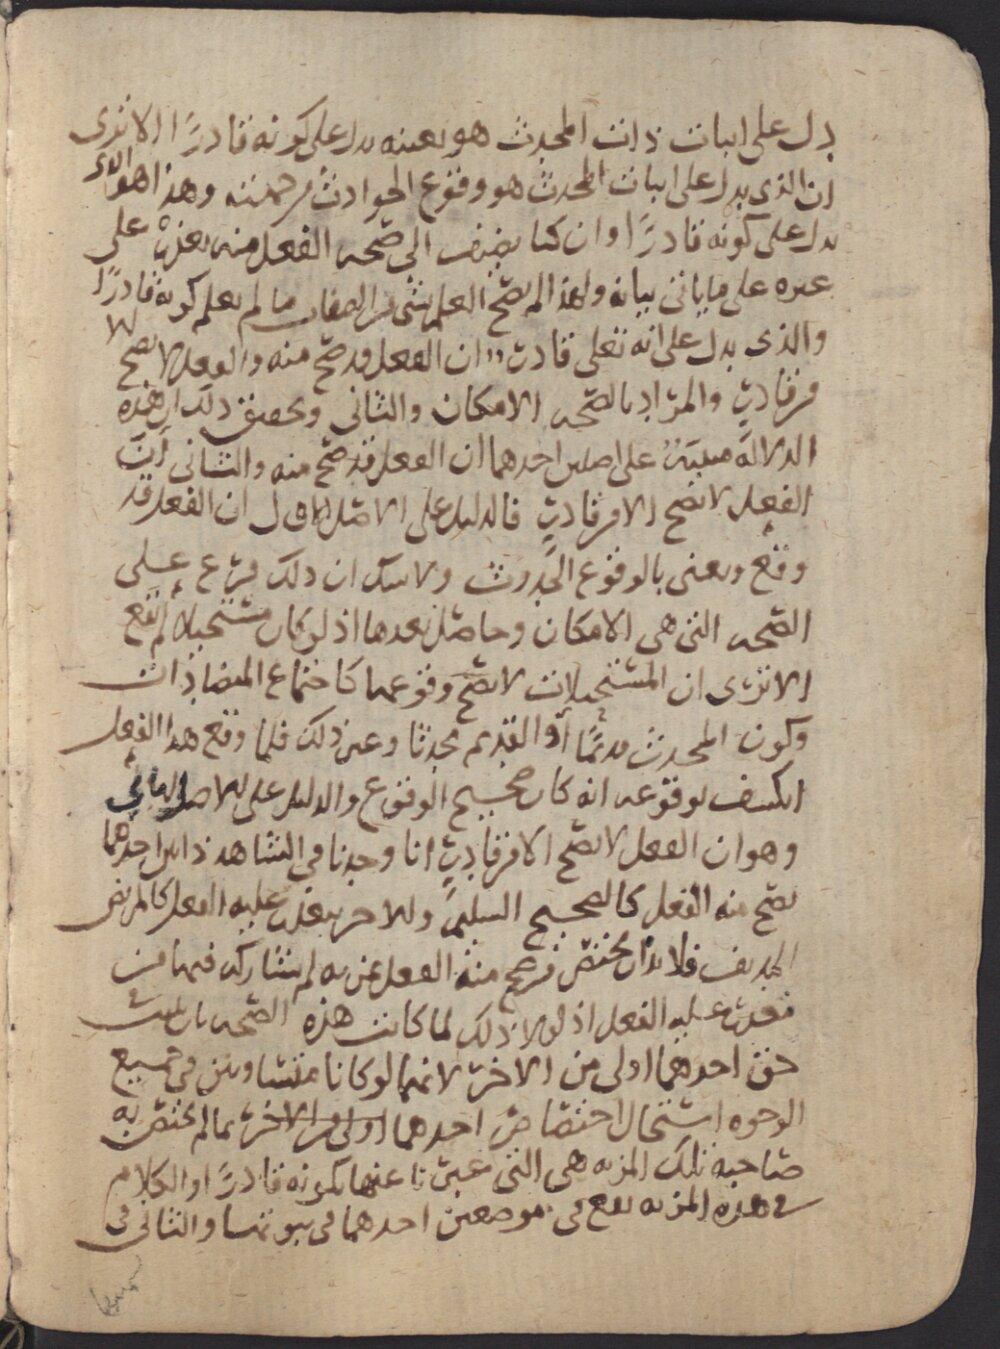 دل على اثبات ذات المحدث هو بعينه يدل على كونه قادرًا الا ترى
ان الذي يدل على اثبات المحدث هو وقوع الحوادث من جهته وهذا هو الذي
يدل على كونه قادرًا وان كنا نضيف الى صحة الفعل منه تعذره على
غيره على ما ياتي بيانه ولهذا لم يصح العلم بشي من الصفات ما لم يعلم كونه قادرًا
والذي يدل على انه تعلى قادر ان الفعل قد صح منه والفعل لا يصح الا
من قادر والمراد بالصحه الامكان والثاني وتحقيق ذلك ان هذه
الدلالة مبنية على اصلين احدهما ان الفعل قد صح منه والثاني ان
الفعل لا يصح الا من قادر فالدليل على الاصل الاول ان الفعل قد
وقع ونعنى بالوقوع الحدوث ولا شك ان ذلك فرع على
الصحه التي هي الامكان وحاصل بعدها اذ لو كان مستحيلا لم يقع
الا ترى ان المستحيلات لا يصح وقوعها كاجتماع المتضادات
وكون المحدث قديمًا او القديم محدثا وغير ذلك فلما وقع هذا الفعل
انكشف بوقوعه انه كان صحيح الوقوع والدليل على الاصل الثاني
وهو ان الفعل لا يصح الا من قادر انا وجدنا في الشاهد ذاتين احدهما
يصح منه الفعل كالصحيح السليم والاخر يتعذر عليه الفعل كالمريض
المدنف فلا بد ان يختص من صح منه الفعل بمزيه لم يشاركه فيها من
تعذر عليه الفعل اذ لولا ذلك لما كانت هذه الصحه بان تثبت
في حق احدهما اولى من الاخر لانهما لو كانا متساويين في جميع
الوجوه استحال اختصاص احدهما اولى من الاخر بما لم يختص به
صاحبه تلك المزيه هي التي عبرنا عنها بكونه قادرًا والكلام
في هذه المزيه يقع في موضعين احدهما في ثبوتها والثاني في